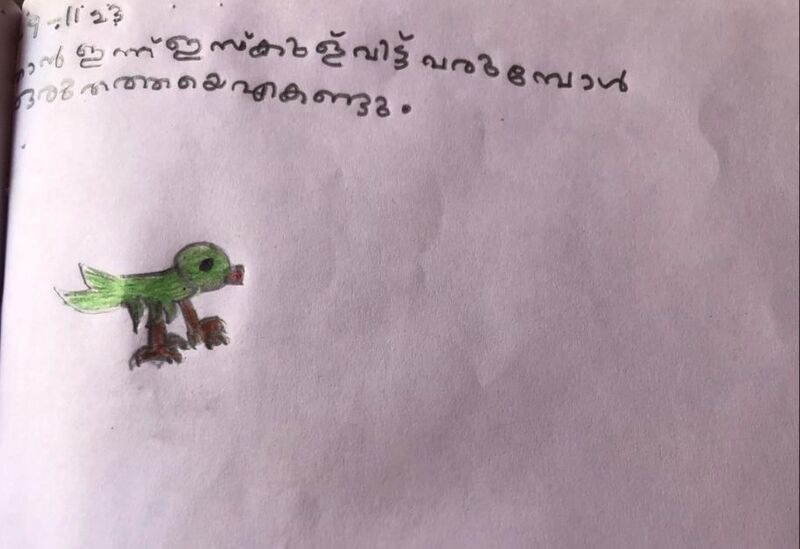 ഞാൻ ഇന്ന് ഇസ്കുള് വിട്ട് വരുമ്പോൾ
ഒരു തത്തയെ കണ്ടു.